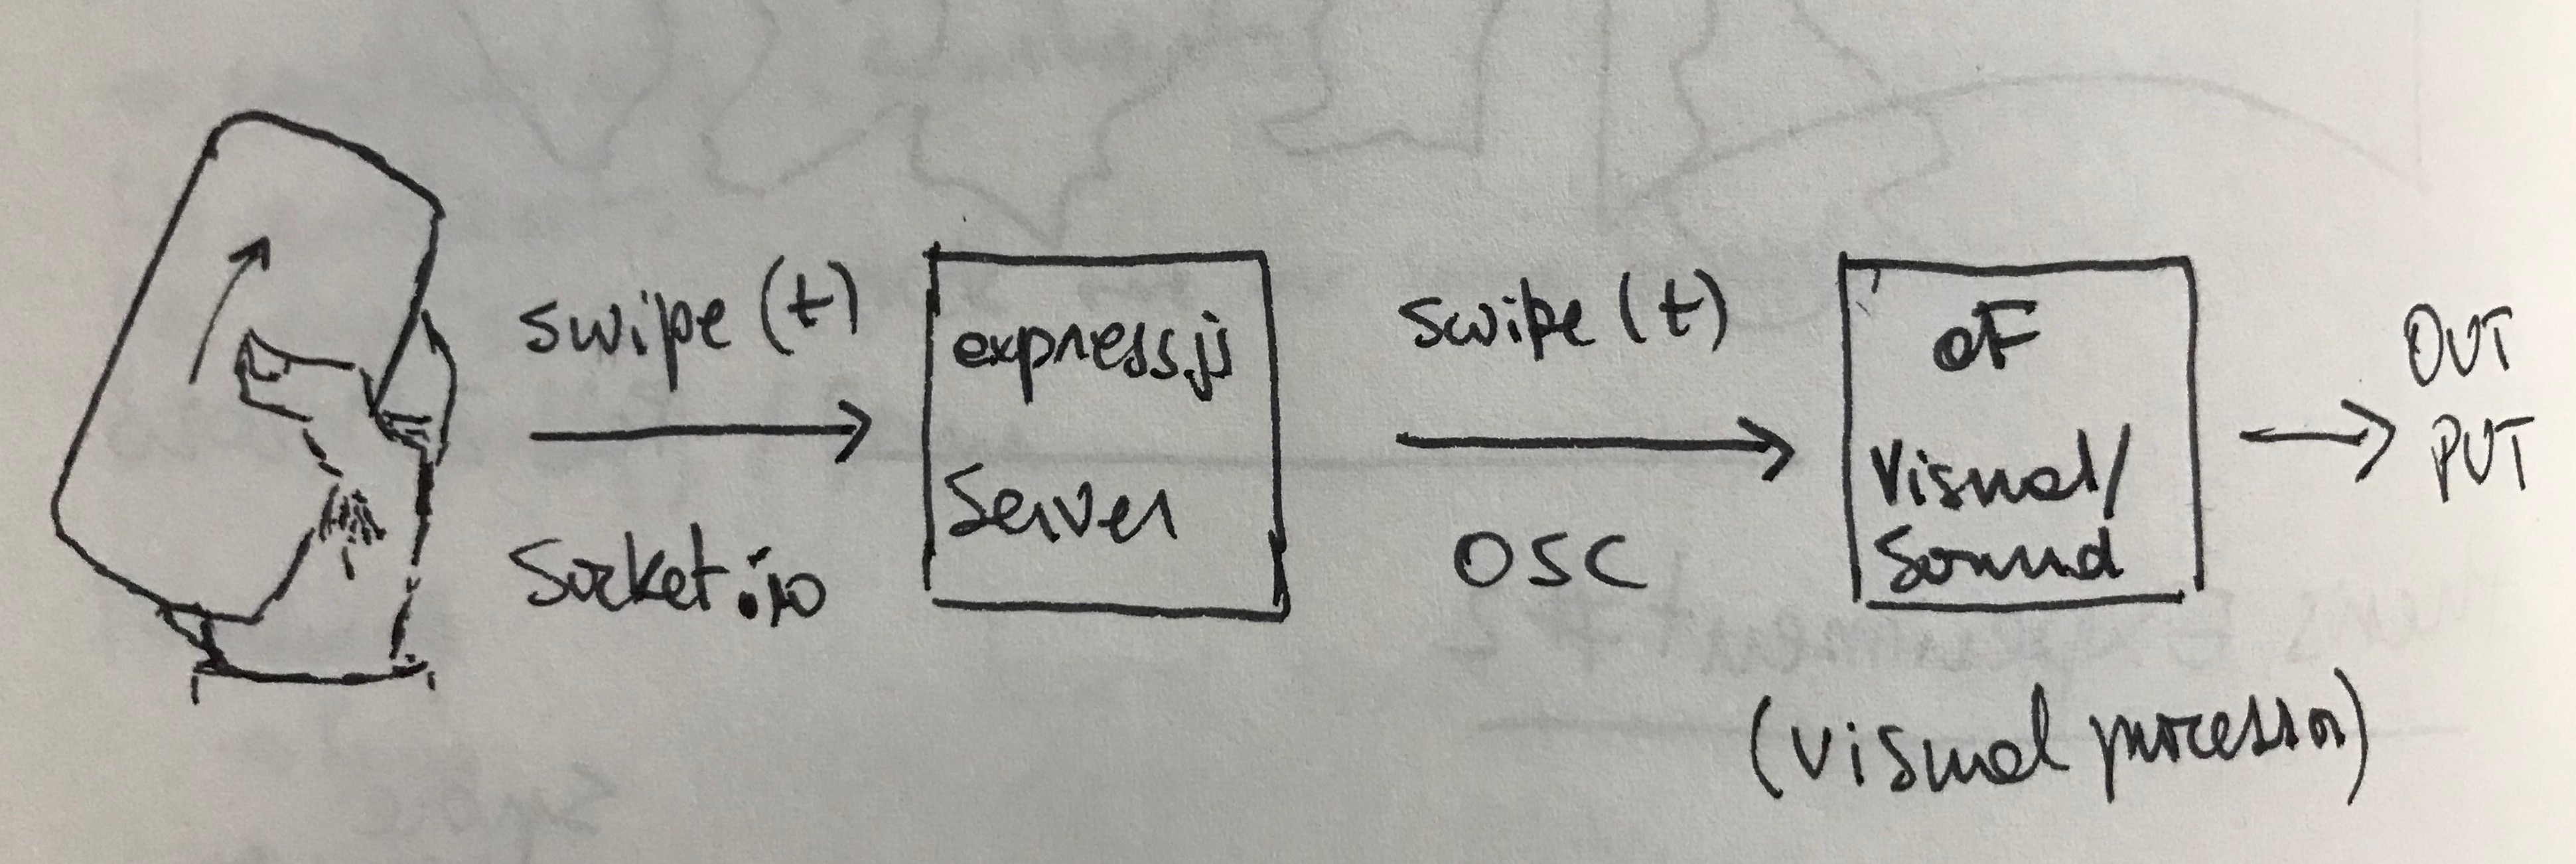 swipe (t)
Socket.io
express.js
Server
swipe (t)
OSC
oF
Visual/
Sound
(visual processor)
OUT
PUT